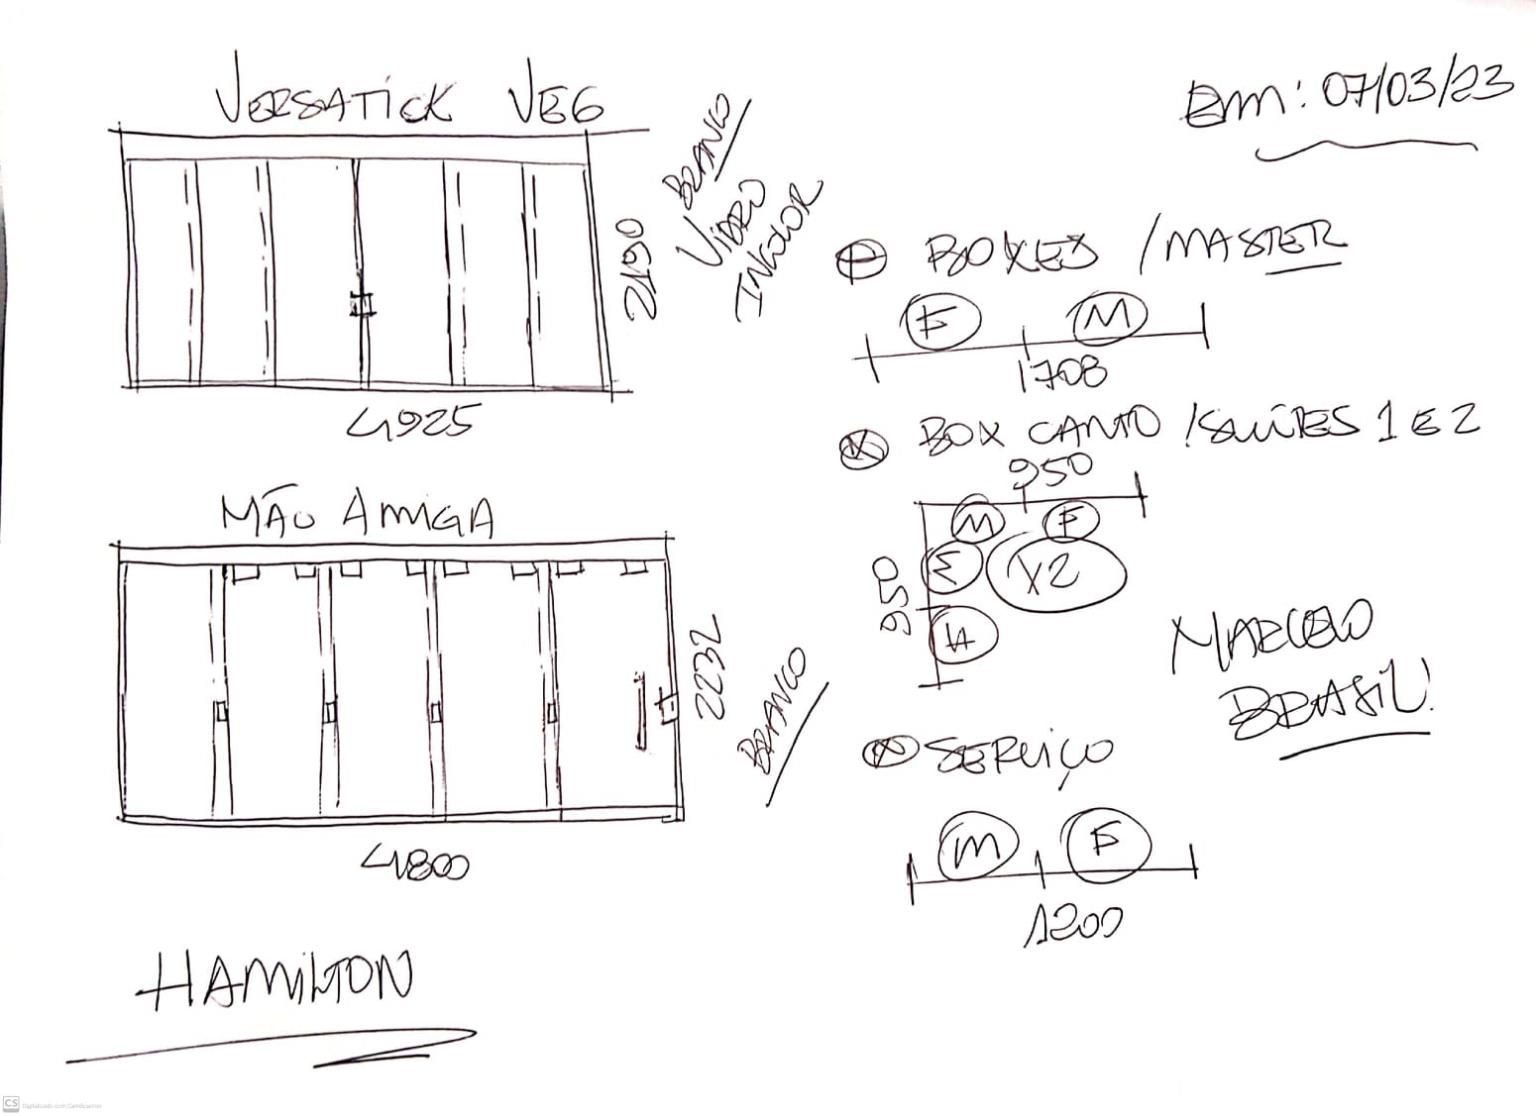 VERSATICK VE6
BRANCO
VIDRO
INCOLOR
2190
4925
MÃO AMIGA
2232
BRANCO
4800
HAMILTON
Em: 07/03/23
BOXES /MASTER
F M
1708
BOX CANTO /SUÍTES 1 E 2
950
M F
950
M
X2
F
MARCELO
BRASIL
SERVIÇO
M F
1200
CS Digitalizado com CamScanner